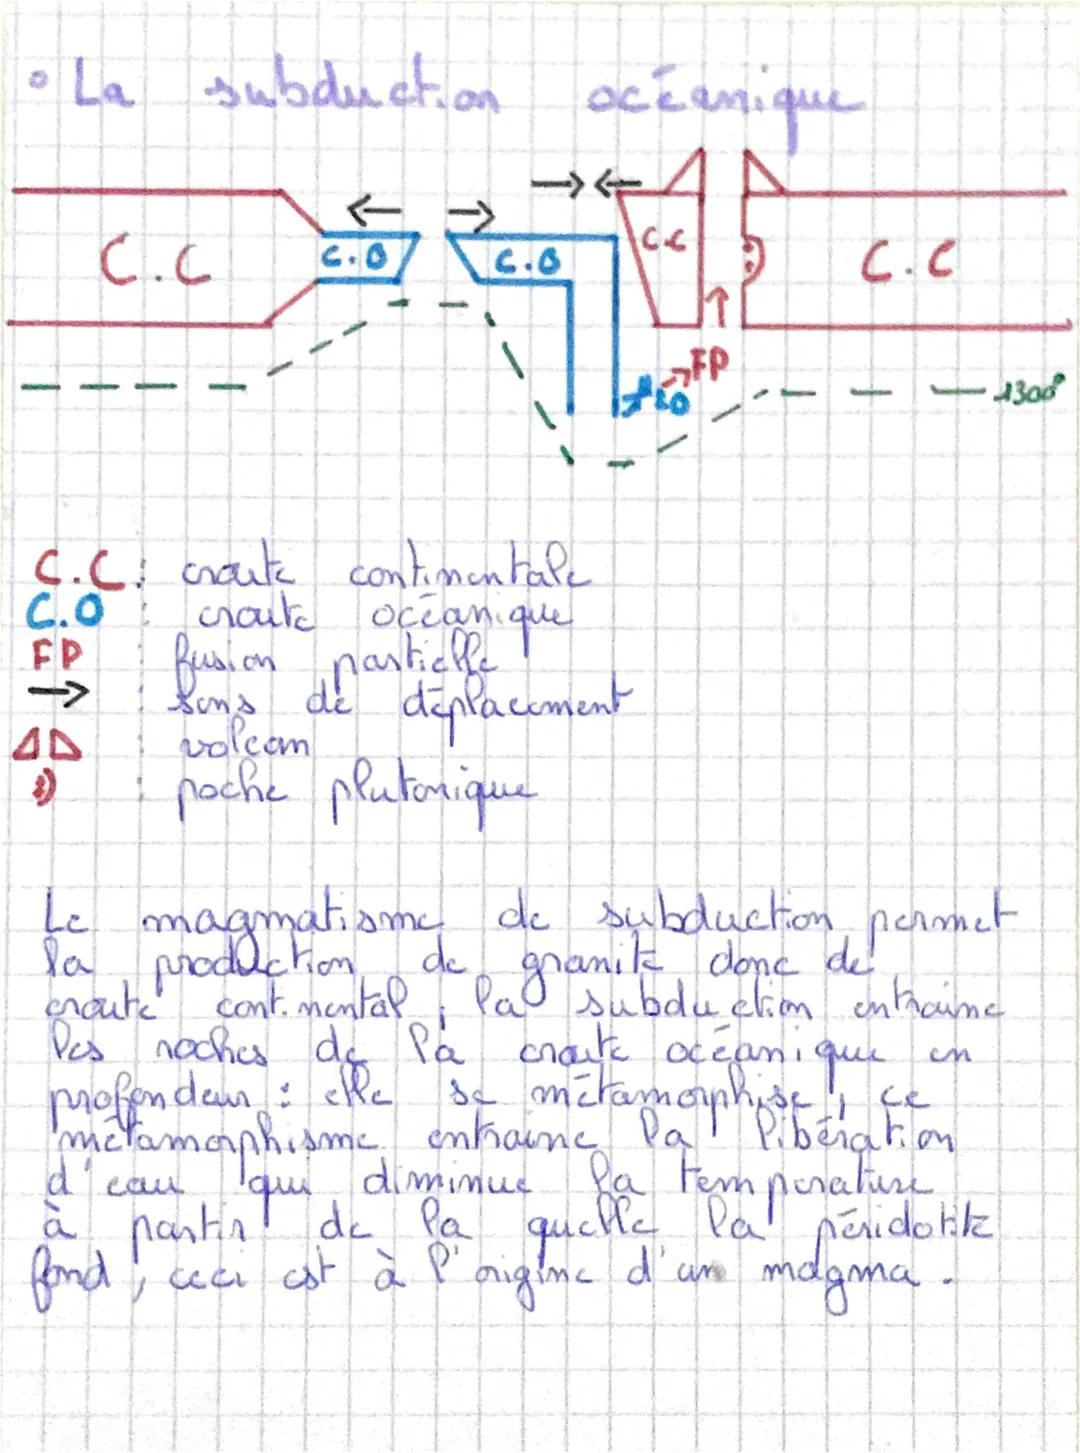 ° La subduction océanique
C.C C.O C.O C.C C.C
FP
1300°
C.C : croute continentale
C.O : croute océanique
FP : fusion partielle
→ : sens de déplacement
: volcan
: poche plutonique
Le magmatisme de subduction permet
la production de granite donc de
croute continental ; la subduction entraine
les roches de la croute océanique en
profondeur : elle se métamorphise, ce
métamorphisme entraine la libération
d'eau qui diminue la température
à partir de la quelle la péridotite
fond, ceci est à l'origine d'un magma.